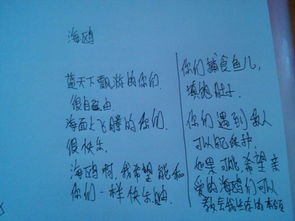 海鸥
蓝天下飘游的你们
很自由
海面上飞腾的你们
很快乐
海鸥啊,我希望能和
你们一样快乐地
你们捕食鱼儿,
填饱肚子
你们遇到敌人
可以
如果可能,希望亲
爱的海鸥们可以
教会我生存的本领